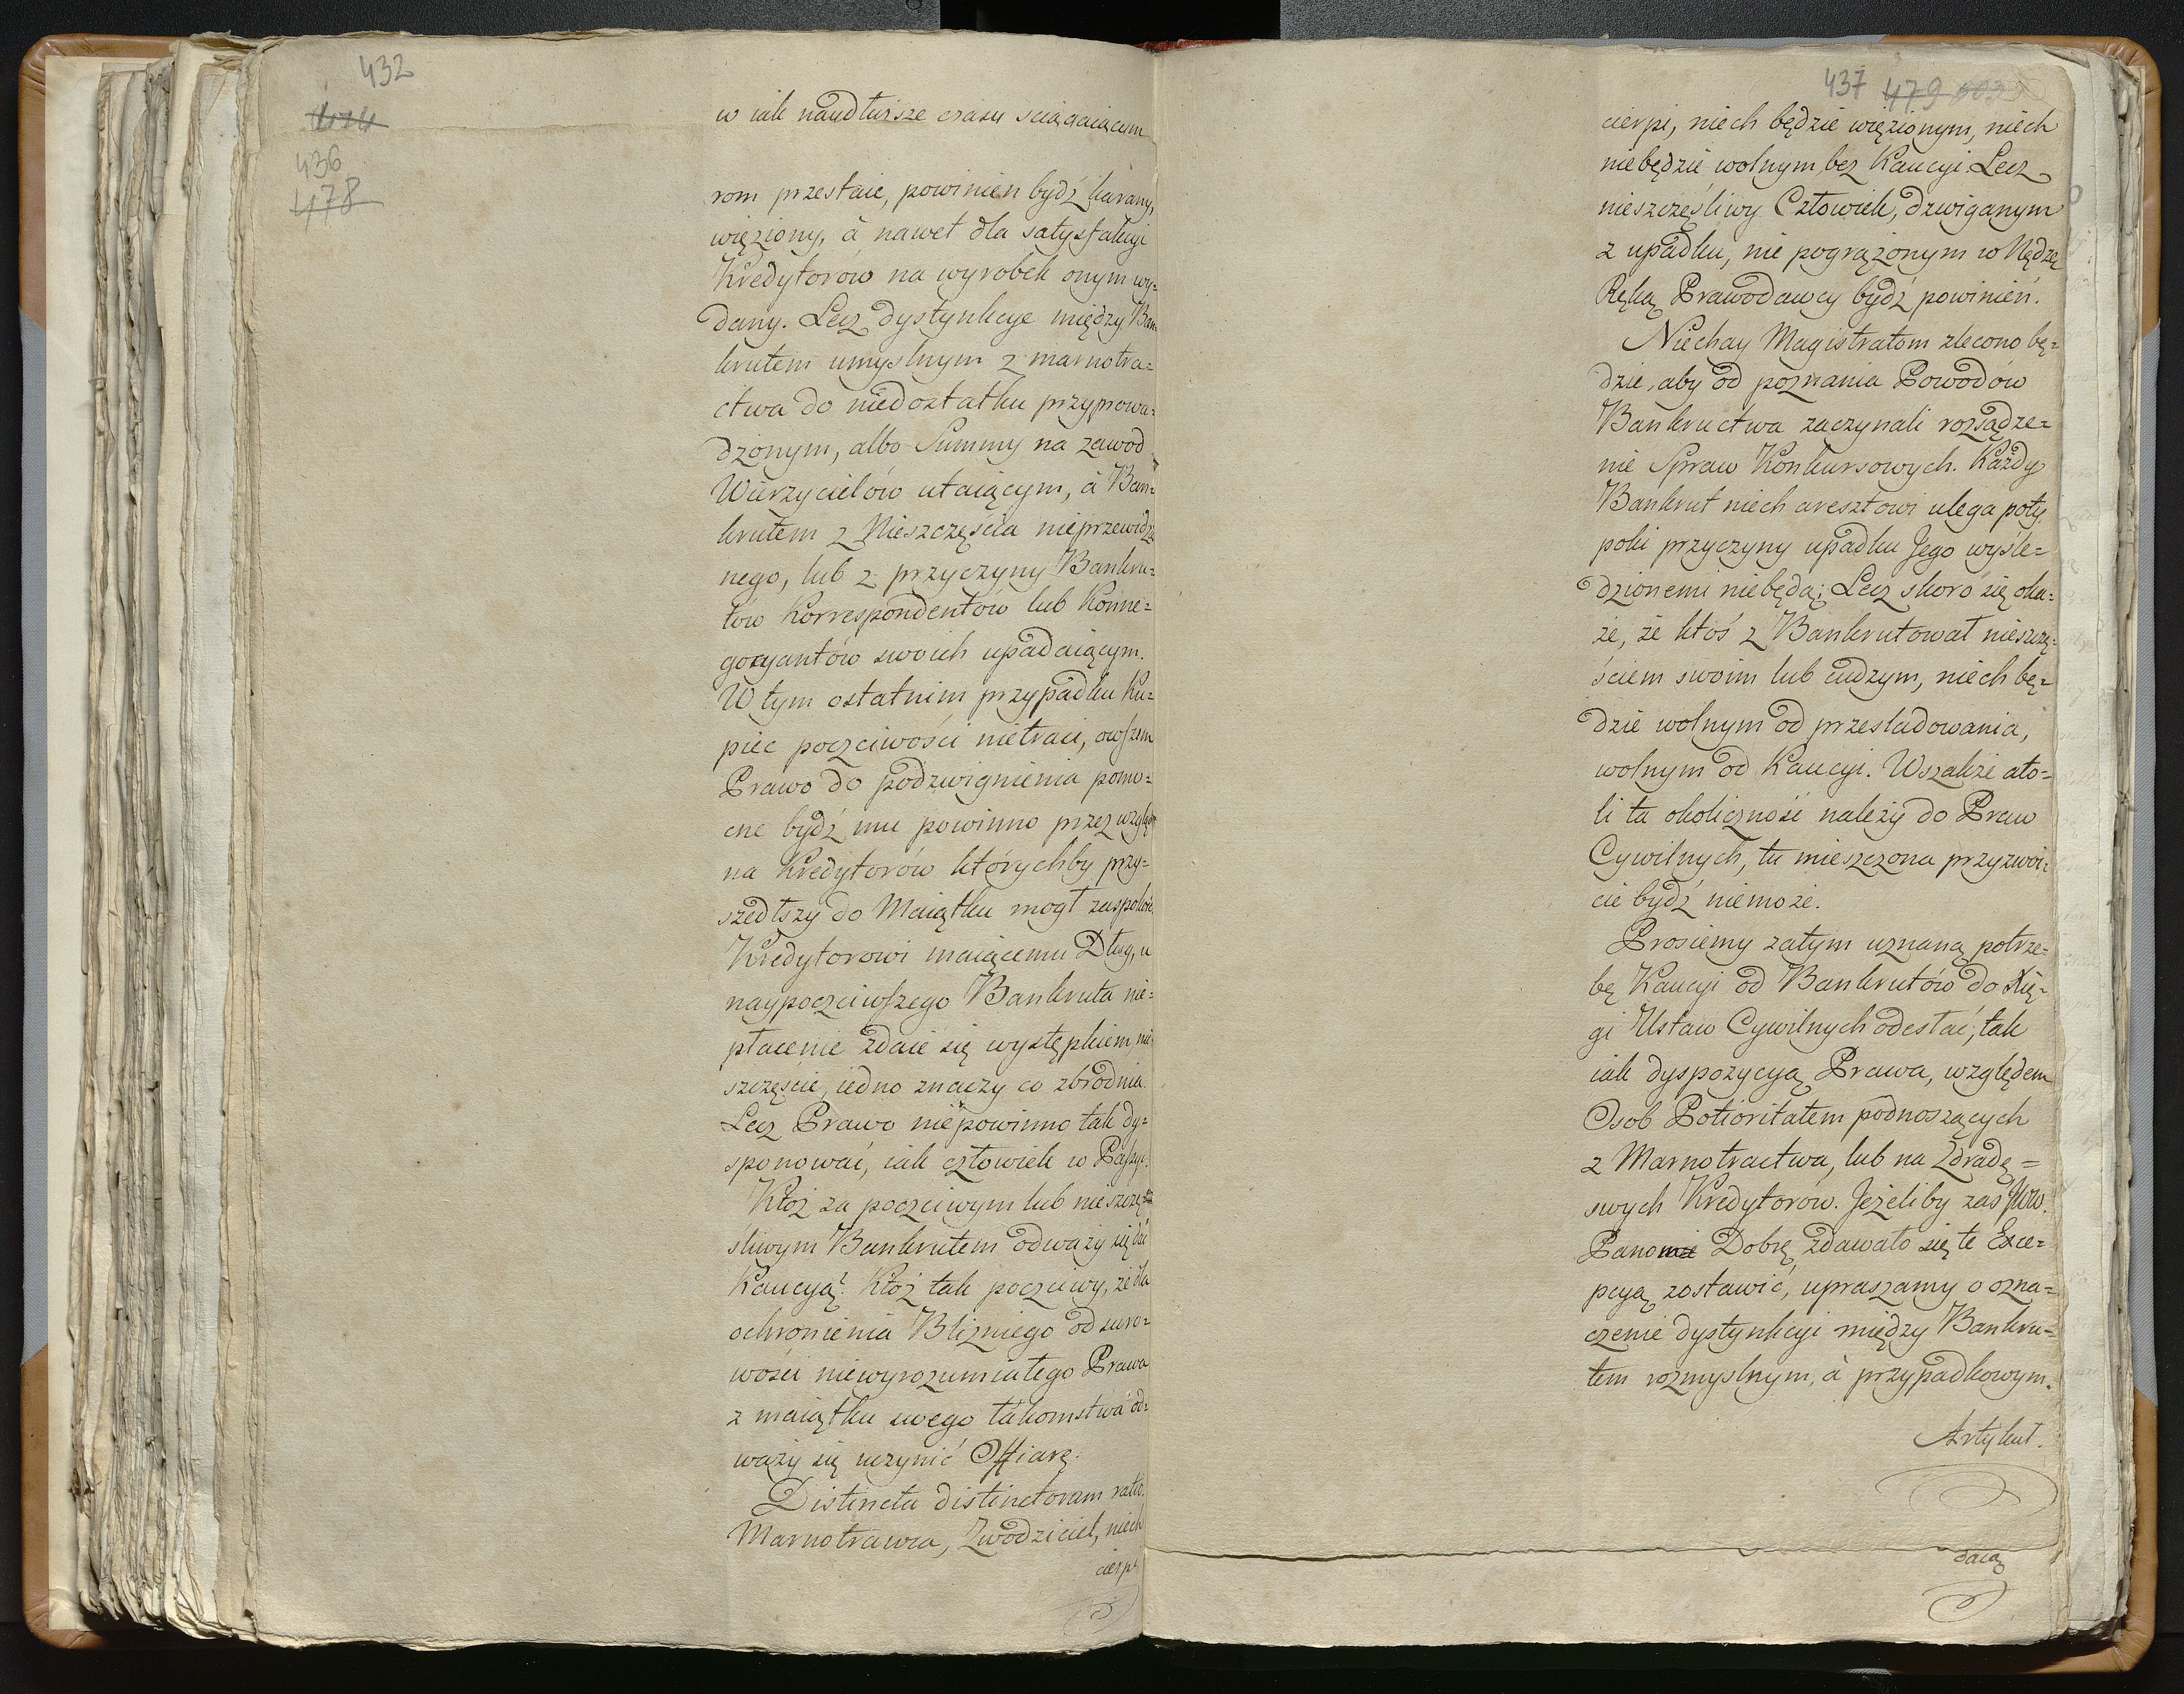 432
436
478
w iak naydłuższe czasu sciągaiącym
rom przestaie, powinien bydź karany,
więziony, à nawet dla satysfakcyi
Kredytorów na wyrobek onym wy=
dany. Lecz dystynkcye między Ban
krutem umyslnym z marnotra=
ctwa do niedostatku przyprowa=
dzonym, albo Summy na zawod
Wierzycielów utaiącym, à Ban=
krutem z Nieszczęścia nieprzewidzia
nego, lub z przyczyny Bankru=
tów Korrespondentów lub Konne=
gocyantów swoich upadaiącym.
W tym ostatnim przypadku Ku=
piec poczciwości nietraci, owszem
Prawo do podzwignienia pomo=
cne bydź mu powinno przez wzgląd
na Kredytorów którychby przy=
szedłszy do Maiątku mogł zaspokoić.
Kredytorowi maiącemu Dług, u
naypoczciwszego Bankruta nie=
płacenie zdaie się występkiem, nie
szczęście, iedno znaczy co zbrodnia.
Lecz Prawo niepowinno tak dy=
sponować, iak człowiek w Passyi.
Ktoż za poczciwym lub nieszczę=
śliwym Bankrutem odważy się dać
Kaucyą? Ktoż tak poczciwy, że dla
ochronienia Blizniego od suro=
wości niewyrozumiałego Prawa
z maiątku swego łakomstwa od=
waży się uczynić Offiarę.
Distincta distinctorum ratio.
Marnotrawca, Zwodziciel, niech
cierpi
437 479
cierpi, niech będzie więzionym, niech
niebędzie wolnym bez Kaucyi. Lecz
nieszczęśliwy Człowiek, dzwiganym
z upadku, nie pogrążonym w Nędzę
Ręką Prawodawcy bydź powinien.
Niechay Magistratom zlecono bę=
dzie, aby od poznania Powodów
Bankructwa zaczynali rozsądze=
nie Spraw Konkursowych. Każdy
Bankrut niech aresztowi ulega poty,
poki przyczyny upadku Jego wyśle=
dzionemi niebędą; Lecz skoro się oka=
że, że ktoś z Bankrutował nieszczę=
ściem swoim lub cudzym, niech bę=
dzie wolnym od przesladowania,
wolnym od Kaucyi. Wszakże ato=
li ta okoliczność należy do Praw
Cywilnych, tu mieszczona przyzwoi=
cie bydź niemoże.
Prosiemy zatym uznaną potrze=
bę Kaucyi od Bankrutów do Xię=
gi Ustaw Cywilnych odesłać, tak
iak dyspozycyą Prawa, względem
Osob Potioritatem podnoszących
z Marnotractwa, lub na Zdradę =
swych Kredytorów. Jeżeliby zaś JWW.
Panom Dobrę zdawało się te Exce=
pcyą zostawić, upraszamy o ozna=
czenie dystynkcyi między Bankru=
tem rozmyslnym, à przypadkowym.
Artykuł.
dacą